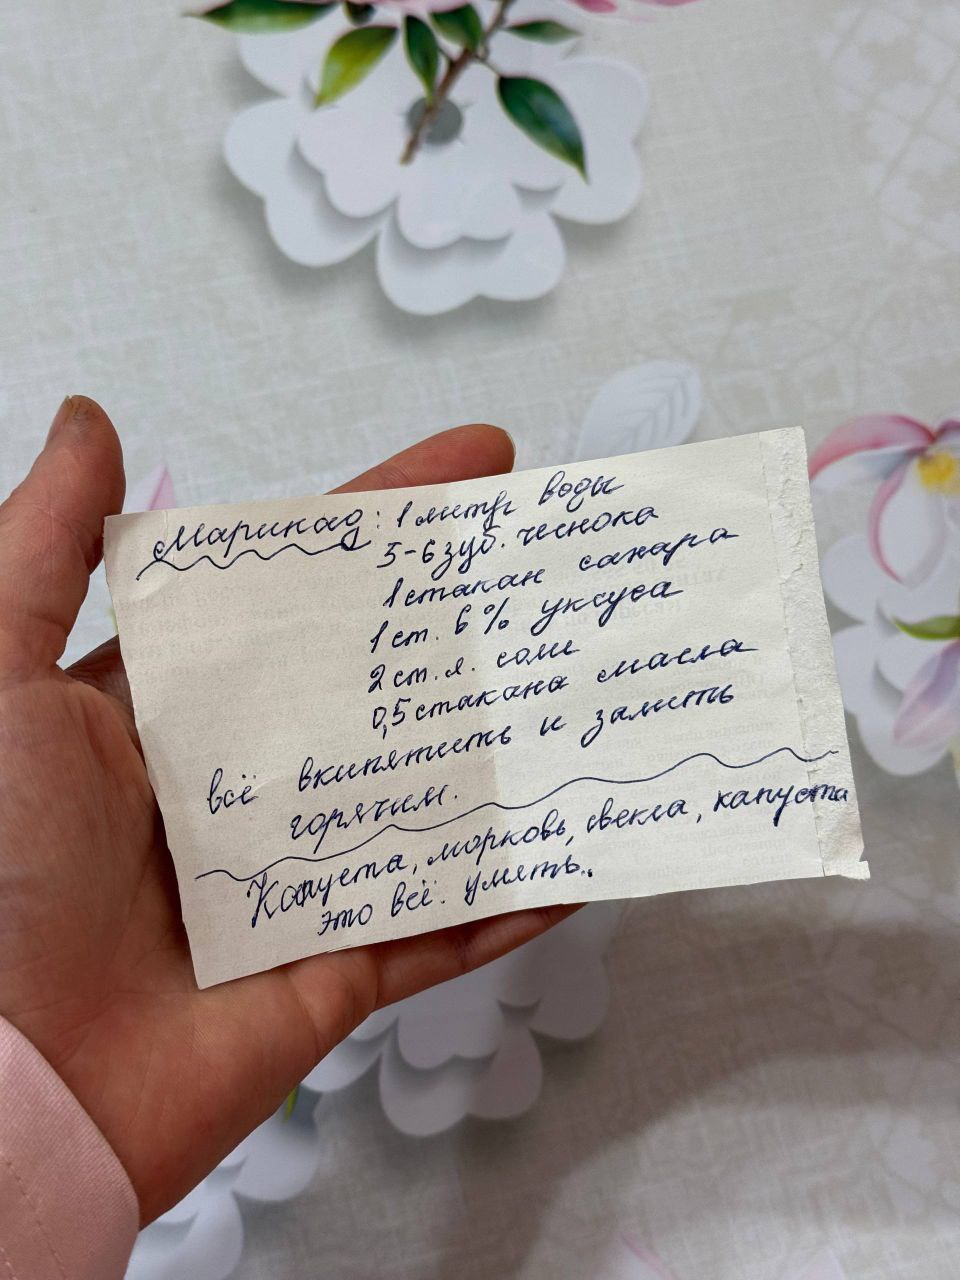 Маринад: 1 литр воды
5-6 зуб. чеснока
1 стакан сахара
1 ст. 6% уксуса
2 ст. л. соли
0,5 стакана масла
всё вкипятить и залить
горячим.
Капуста, морковь, свекла, капуста
это всё. умять..